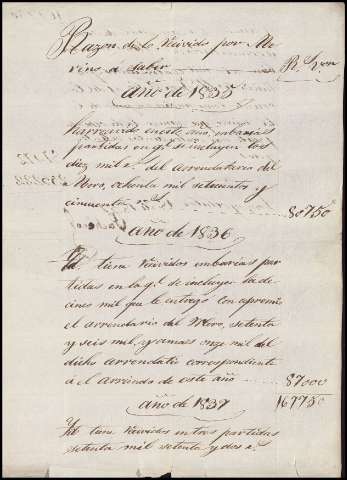 Razon de lo Recivido por Me
rino a saber
Rs. Von
año de 1835
Ha recivido en este año, en barias
partidas en q.e se incluyen los
diez mil r.s del arrendatario del
Moro, ochenta mil setecientos y
cincuenta 80750
año de 1836
Yd tiene Recividos en barias par
tidas en la q.e se incluyen la de
cines mil que le entrego con apremio
el arrendatario del Moro, setenta
y seis mil, y a mas onze mil del
dicho arrendatio correspondiente
a el arriendo de este año 87000
167750
año de 1837
Yd tiene Recividos en tres partidas
setenta mil setenta y dos r.s